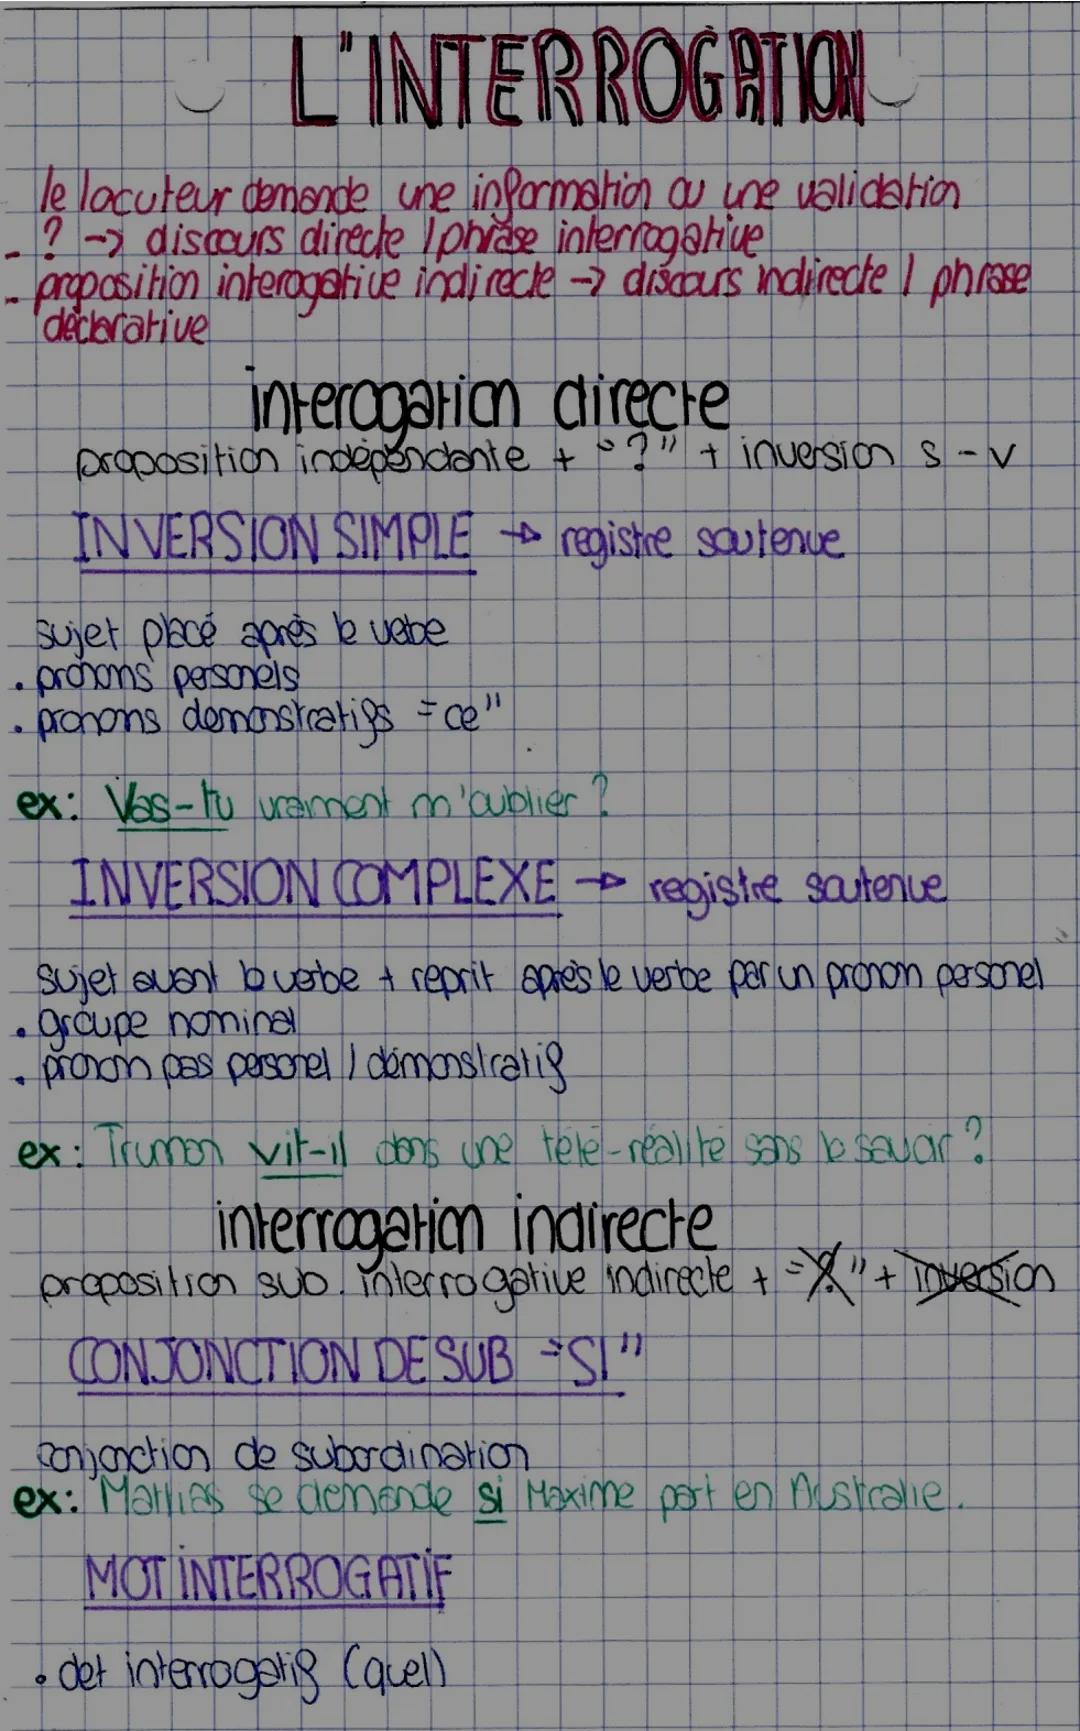 L'INTERROGATION
le locuteur demande une information ou une validation
- ? -> discours directe / phrase interrogative
- proposition interogative indirecte -> discours indirecte / phrase
déclarative
interogation directe
proposition indépendante + "?" + inversion s - v
INVERSION SIMPLE -> registre soutenue
sujet placé après le vebe
. pronoms personels
. pronoms demonstratifs "ce"
ex: Vas-tu vraiment m'oublier ?
INVERSION COMPLEXE -> registre soutenue
sujet avant le verbe + reprit après le verbe par un pronom personel
. groupe nominal
. pronom pas personel / démonstratif
ex : Truman vit-il dans une télé-réalité sans le savoir ?
interrogation indirecte
proposition sub. interrogative indirecte + "?" + inversion
CONJONCTION DE SUB "SI"
conjonction de subordination
ex: Mathias se demande si Maxime part en Australie.
MOT INTERROGATIF
. det interrogatif (quel)